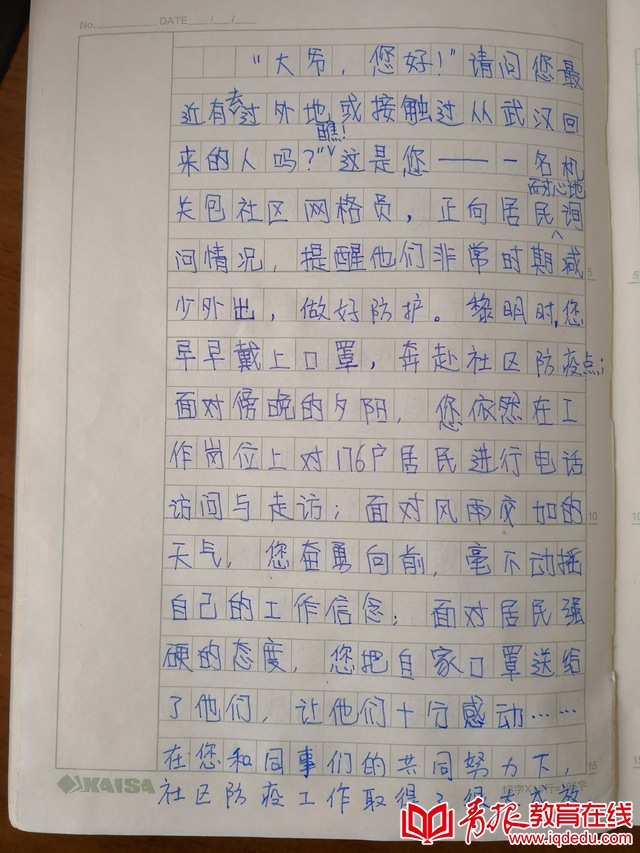 No. DATE / /
"大爷，您好！"请问您最
近有去过外地或接触过从武汉回
瞧！
来的人吗？"这是您——一名机
耐心地
关包社区网格员，正向居民询
问情况，提醒他们非常时期减
少外出，做好防护。黎明时，您
早早戴上口罩，奔赴社区防疫点；
面对傍晚的夕阳，您依然在工
作岗位上对176户居民进行电话
访问与走访；面对风雨交加的
天气，您奋勇向前，毫不动摇
自己的工作信念；面对居民强
硬的态度，您把自家口罩送给
了他们，让他们十分感动……
在您和同事们的共同努力下，
社区防疫工作取得了
5
10
15
KAISA
青报教育在线
www.iqdedu.com